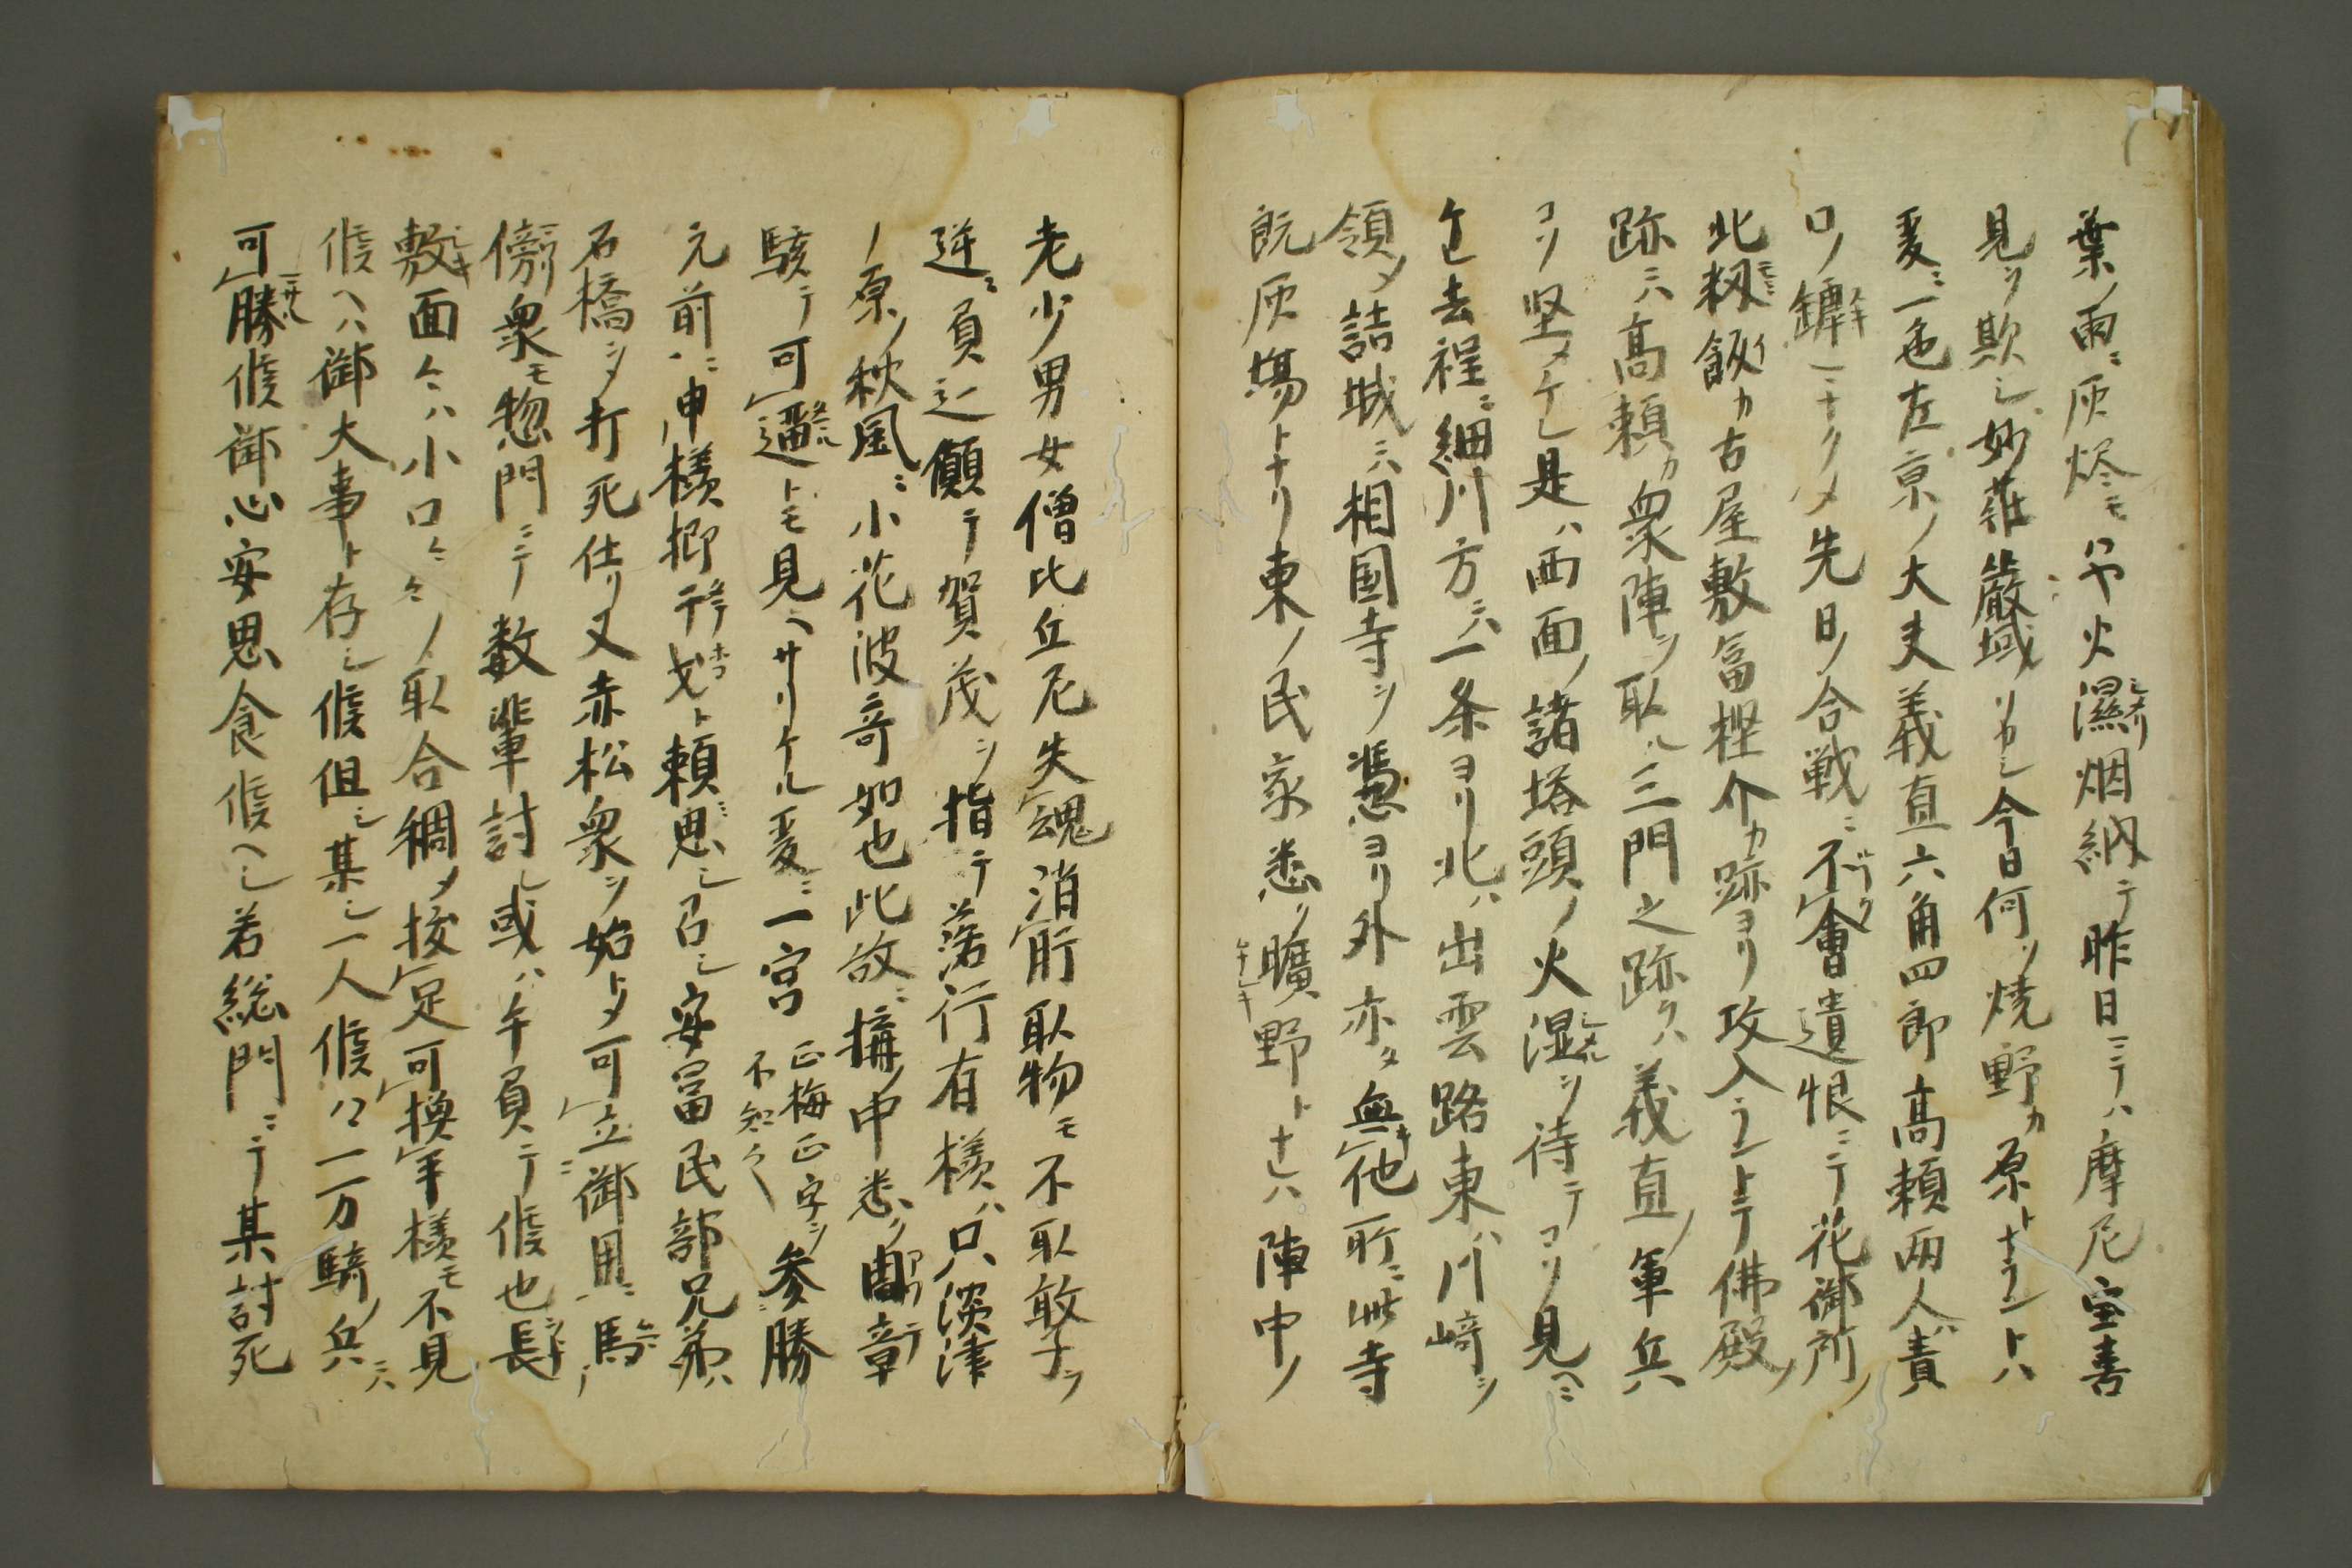 葉ノ雨ニ灰燼モハヤ火濕シメリ烟納テ昨日ニテハ摩尼宝善
見ヲ欺シ妙荘嚴域リカシ今日何ソ焼野カ原トナラントハ
爰ニ一色左京ノ大夫義直六角四郎高頼両人ハ責
口ノ罅ヒヽキニナクメ先日ノ合戦ニ不會遺恨ニテ花御所ノ
北籾モミ飯イカ古屋敷冨樫介カ跡ヨリ攻入ラントテ佛殿ノ
跡ニハ高頼カ衆陣ヲ取ル三門之跡ヲハ義直ノ軍兵
コソ堅メケレ是ハ西面ノ諸塔頭ノ火湿シメルヲ待テコソ見ヘニ
ケレ去程ニ細川方ニハ一条ヨリ北ハ出雲路東ハ川﨑ヲ
領メ詰城ニハ相国寺ヲ憑ヨリ外亦タ無キ他所ニ此寺
既灰場トナリ東ノ民家悉ク曠野トナレハ陣中ノ
老少男女僧比丘尼失魂消肝取物モ不取敢子ヲ
逆ニ負辷顛テ賀茂ヲ指テ落行有様ハ只淡津
ノ原ノ秋風ニ小花波寄如也此故ニ搆ノ中悉ク周アワ章テ
駭テ可遁トモ見ヘサリケル爰ニ一宮 正梅正字ヲ不知々 参勝
元前ニ申様抑サテ頼思シ召シ安冨民部兄弟ハ
石橋ニヲ打死仕リ又赤松衆ヲ始トメ可立御用ニ馬ノ
傍衆モ惣門ニテ数輩討レ或ハ午負ニテ候也長
敷シキ面々ハ小口々々ノ取合稠メ按足可換手様モ不見
候ヘハ御大事ト存シ候但シ某シ一人候ハヽ一万騎ノ兵ニハ
可勝候御心安思食候ヘシ若総門ニテ某討死